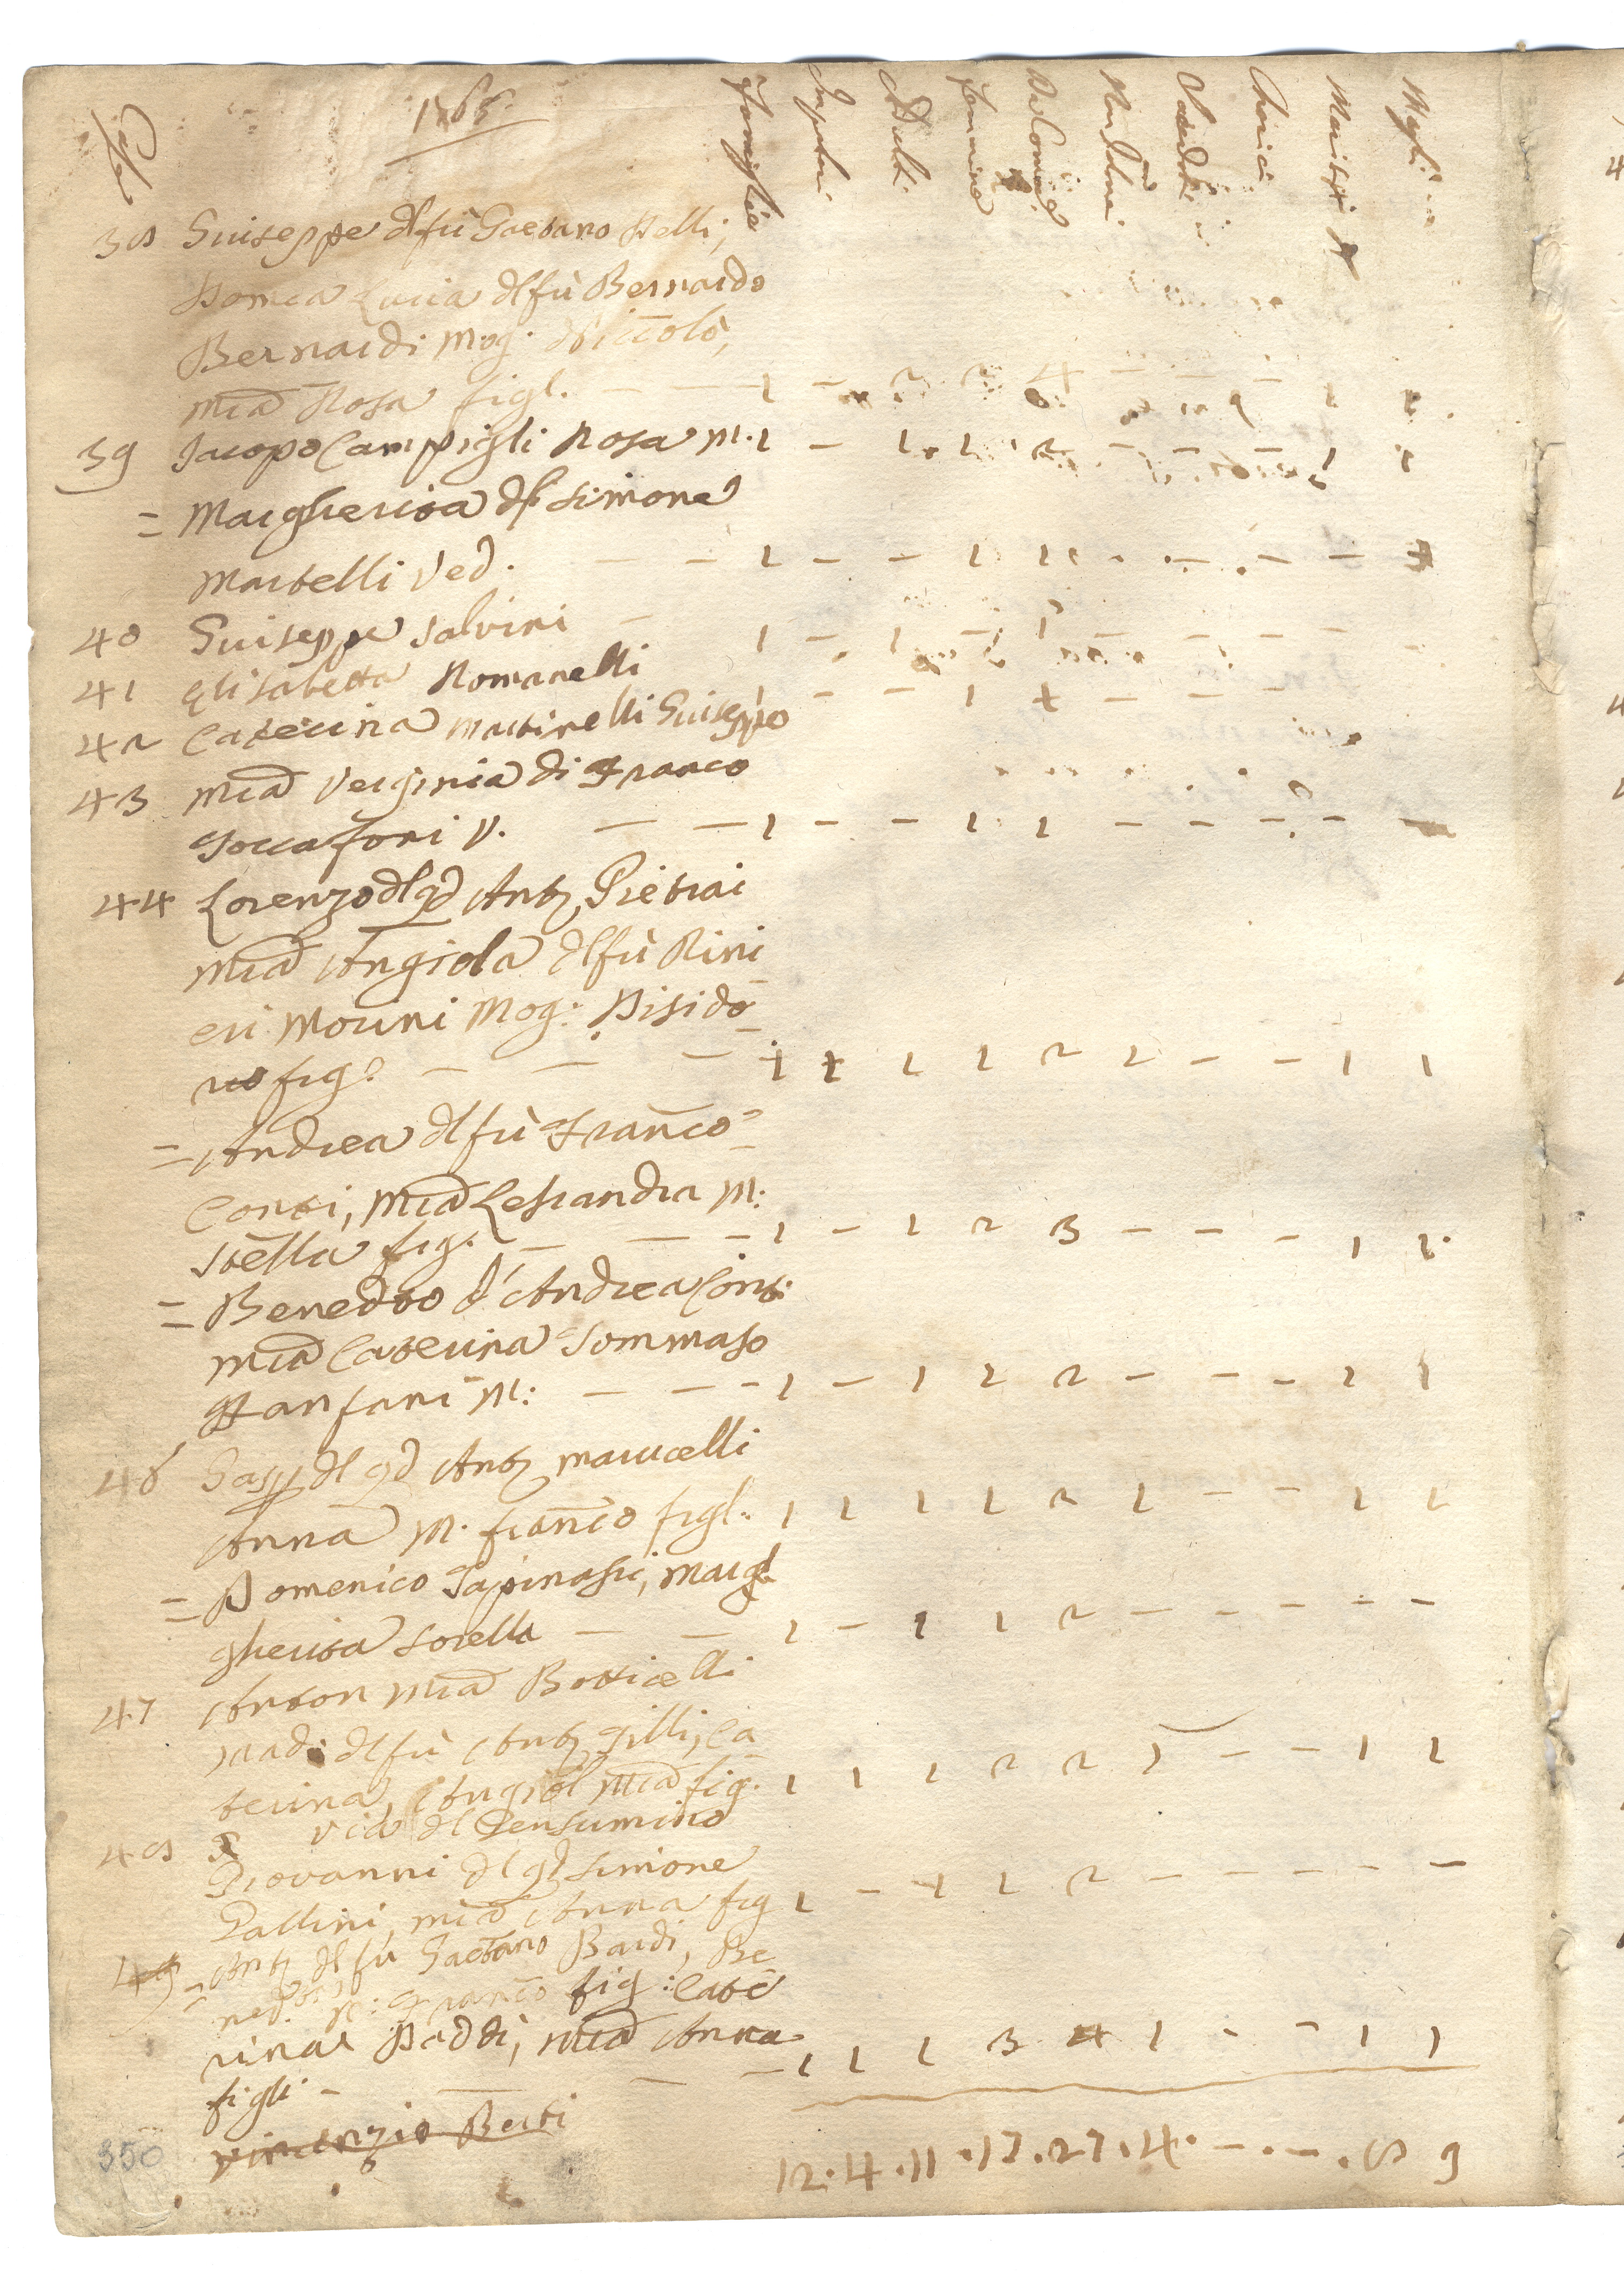 Case 1765
Famiglie Impuberi Adulti Femmine Da Comunione Non Idonei Sacerdoti Cherici Mariti Mogli
38 Guiseppe dl fù Gaetano Nelli,
Domca Lucia dl fù Bernardo
Bernardi Mog: Niccolò,
Mia Rosa figl. — — 1 – 2 2 4 – – – 1 1
39 Jacopo Campigli Rosa M. 1 – 1 1 2 – – – 1 1
= Margherita dl Simone
Martelli Ved. — — 1 – – 1 1 – – – –
40 Guiseppe Salvini — 1 – 1 – 1 – – – –
41 Elisabetta Romanelli
42 Caterina Martinelli Guiseppe 1 – – 1 1 – – –
43 Mia Verginia di Franco
Toccafoni V. — — 1 – – 1 1 – – – – –
44 Lorenzo dl qd Anto Pietrai
Mia Angiola dl fù Rini
eri Morini Mog: Disido
rio fig: — — — 1 1 1 1 2 1 – – 1 1
= Andrea dl fù Franco
Conti, Mia Lesandra M:
Stella fig. — — – 1 – 1 2 3 – – – 1 1
= Benedto d'Andrea Conti
Mia Caterina Tommaso
Fanfani M: — — – 1 – 1 1 2 – – – 1 1
46 Gaspo dl qd Anto Marucelli
Anna M. Franco figl. 1 1 1 1 2 1 – – 1 1
= Domenico Tapinassi, Mar
gherita sorella — — 1 – 1 1 2 – – – – –
47 Anton Mia Botticelli
Mad: dl fù Anto Gilli, Ca
terina, Angiol Mia fig. 1 1 1 2 2 1 – – 1 1
48 Via dl Pensumino
Giovanni dl qd Simone
Pallini, Mia Anna fig 1 – 1 1 2 – – – – –
49 = Anto dl fù Gaetano Bardi, Be
nedta M: Franco fig: Cate
rina Baddi, Mia Anna
figli – — — – 1 1 1 3 4 1 – – 1 1
Vincenzio Berti
350 12 . 4 . 11 . 17 . 27 . 4 . – . – . 8 9